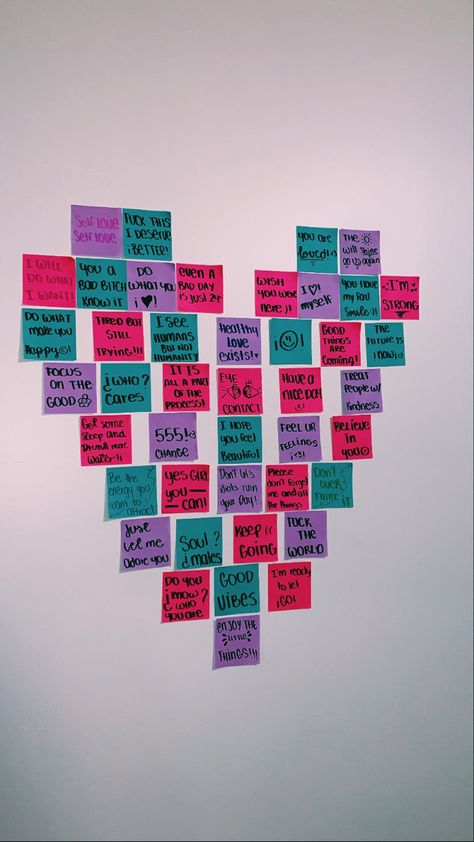 Self love
Self love
FUCK THIS
I DESERVE
¡BETTER!
you are
loved!<3
THE
will shine
on us again
I WILL
DO WHAT
I WANT!
you a
BAD BITCH
KNOW IT
DO
WHAT you
i ♥!
EVEN A
BAD DAY
IS JUST 24
WISH
you were
HERE )!
I ♡!
myself
you Have
my fav
Smile :)!
I'M
STRONG
DO WHAT
make you
Happy☺!
TIRED BUT
STILL
TRYING!!!
I SEE
HUMANS
BUT NOT
HUMANITY
Healthy
love
exists!
GOOD
THINGS
ARE
coming!
THE
FUTURE IS
¡now!<
FOCUS
ON THE
GOOD
¿WHO?
cares
IT IS
ALL A PART
OF THE
PROCESS!
EYE
CONTACT
Have a
nice DAY
:)!
TREAT
PEOPLE W/
Kindness
Get some
sleep and
Drink more
Water!
555!<3
CHANGE
I HOPE
you FEEL
Beautiful
FEEL UR
FEELINGS
¡<3!
Believe
in
you☺
Be the
energy you
want to
attract
yes GIRL
you
CAN!
Don't let
idiots ruin
your Day!
Please
don't forget
me and all
the things
Don't
over
THINK IT
Just
let me
adore you
Soul?
¿males
Keep
GOING
FUCK
THE
WORLD
Do you
¿know?
¿WHO
you are
GOOD
VIBES
I'm ready
to let
¡GO!
ENJOY THE
little
THINGS!!!